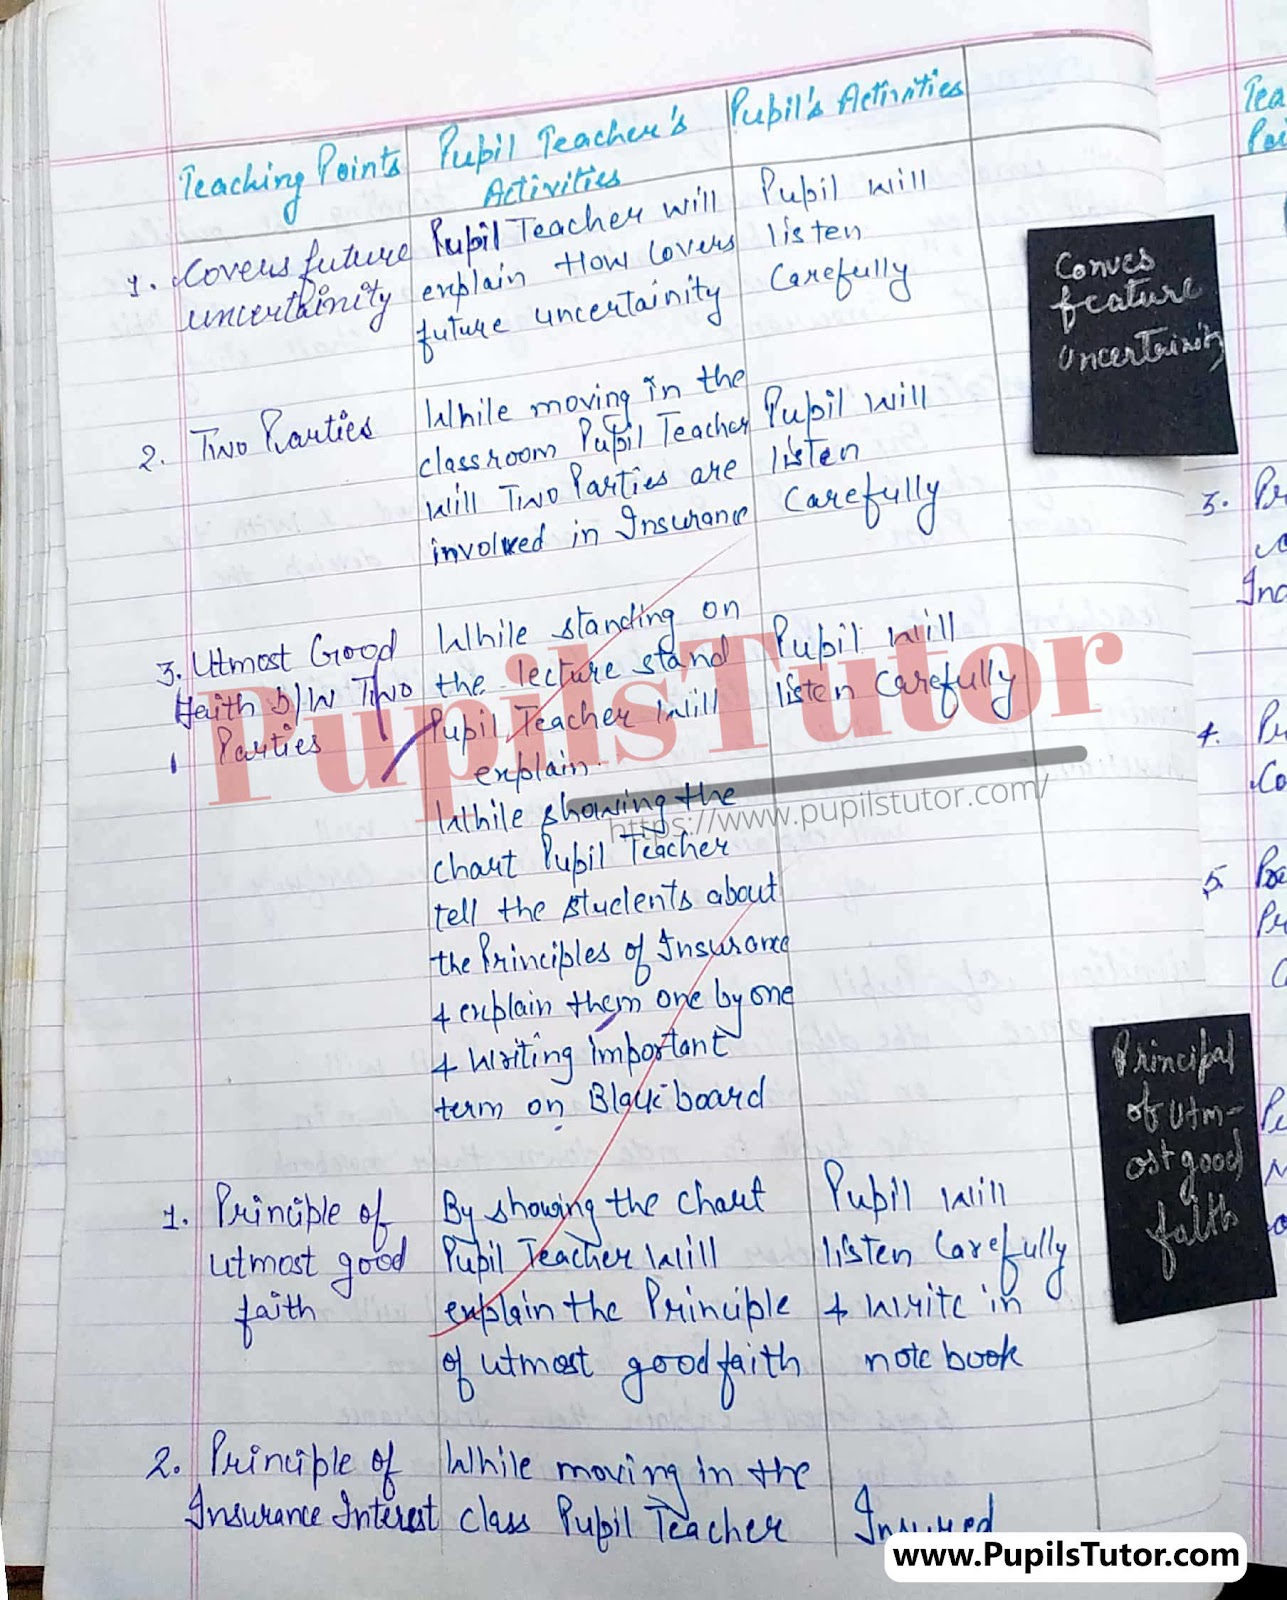 Teaching Points
Pupil Teacher's
Activities
Pupil's Activities
1. Covers future
uncertainity
Pupil Teacher will
explain How Covers
future uncertainity
Pupil will
listen
Carefully
Conves
feature
Uncertainity
2. Two Parties
While moving in the
classroom Pupil Teacher
will Two Parties are
involved in Insurance
Pupil will
listen
Carefully
3. Utmost Good
Faith b/w Two
Parties
While standing on
the lecture stand
Pupil Teacher will
explain.
Pupil will
listen Carefully
While showing the
chart Pupil Teacher
tell the students about
the Principles of Insurance
& explain them one by one
& writing important
term on Blackboard
1. Principle of
utmost good
faith
By showing the chart
Pupil Teacher will
explain the Principle
of utmost good faith
Pupil will
listen Carefully
& write in
note book
Principal
of utm-
ost good
faith
2. Principle of
Insurance Interest
While moving in the
class Pupil Teacher
Insured
Tea
3.
4.
5.
PupilsTutor
https://www.pupilstutor.com/
www.PupilsTutor.com